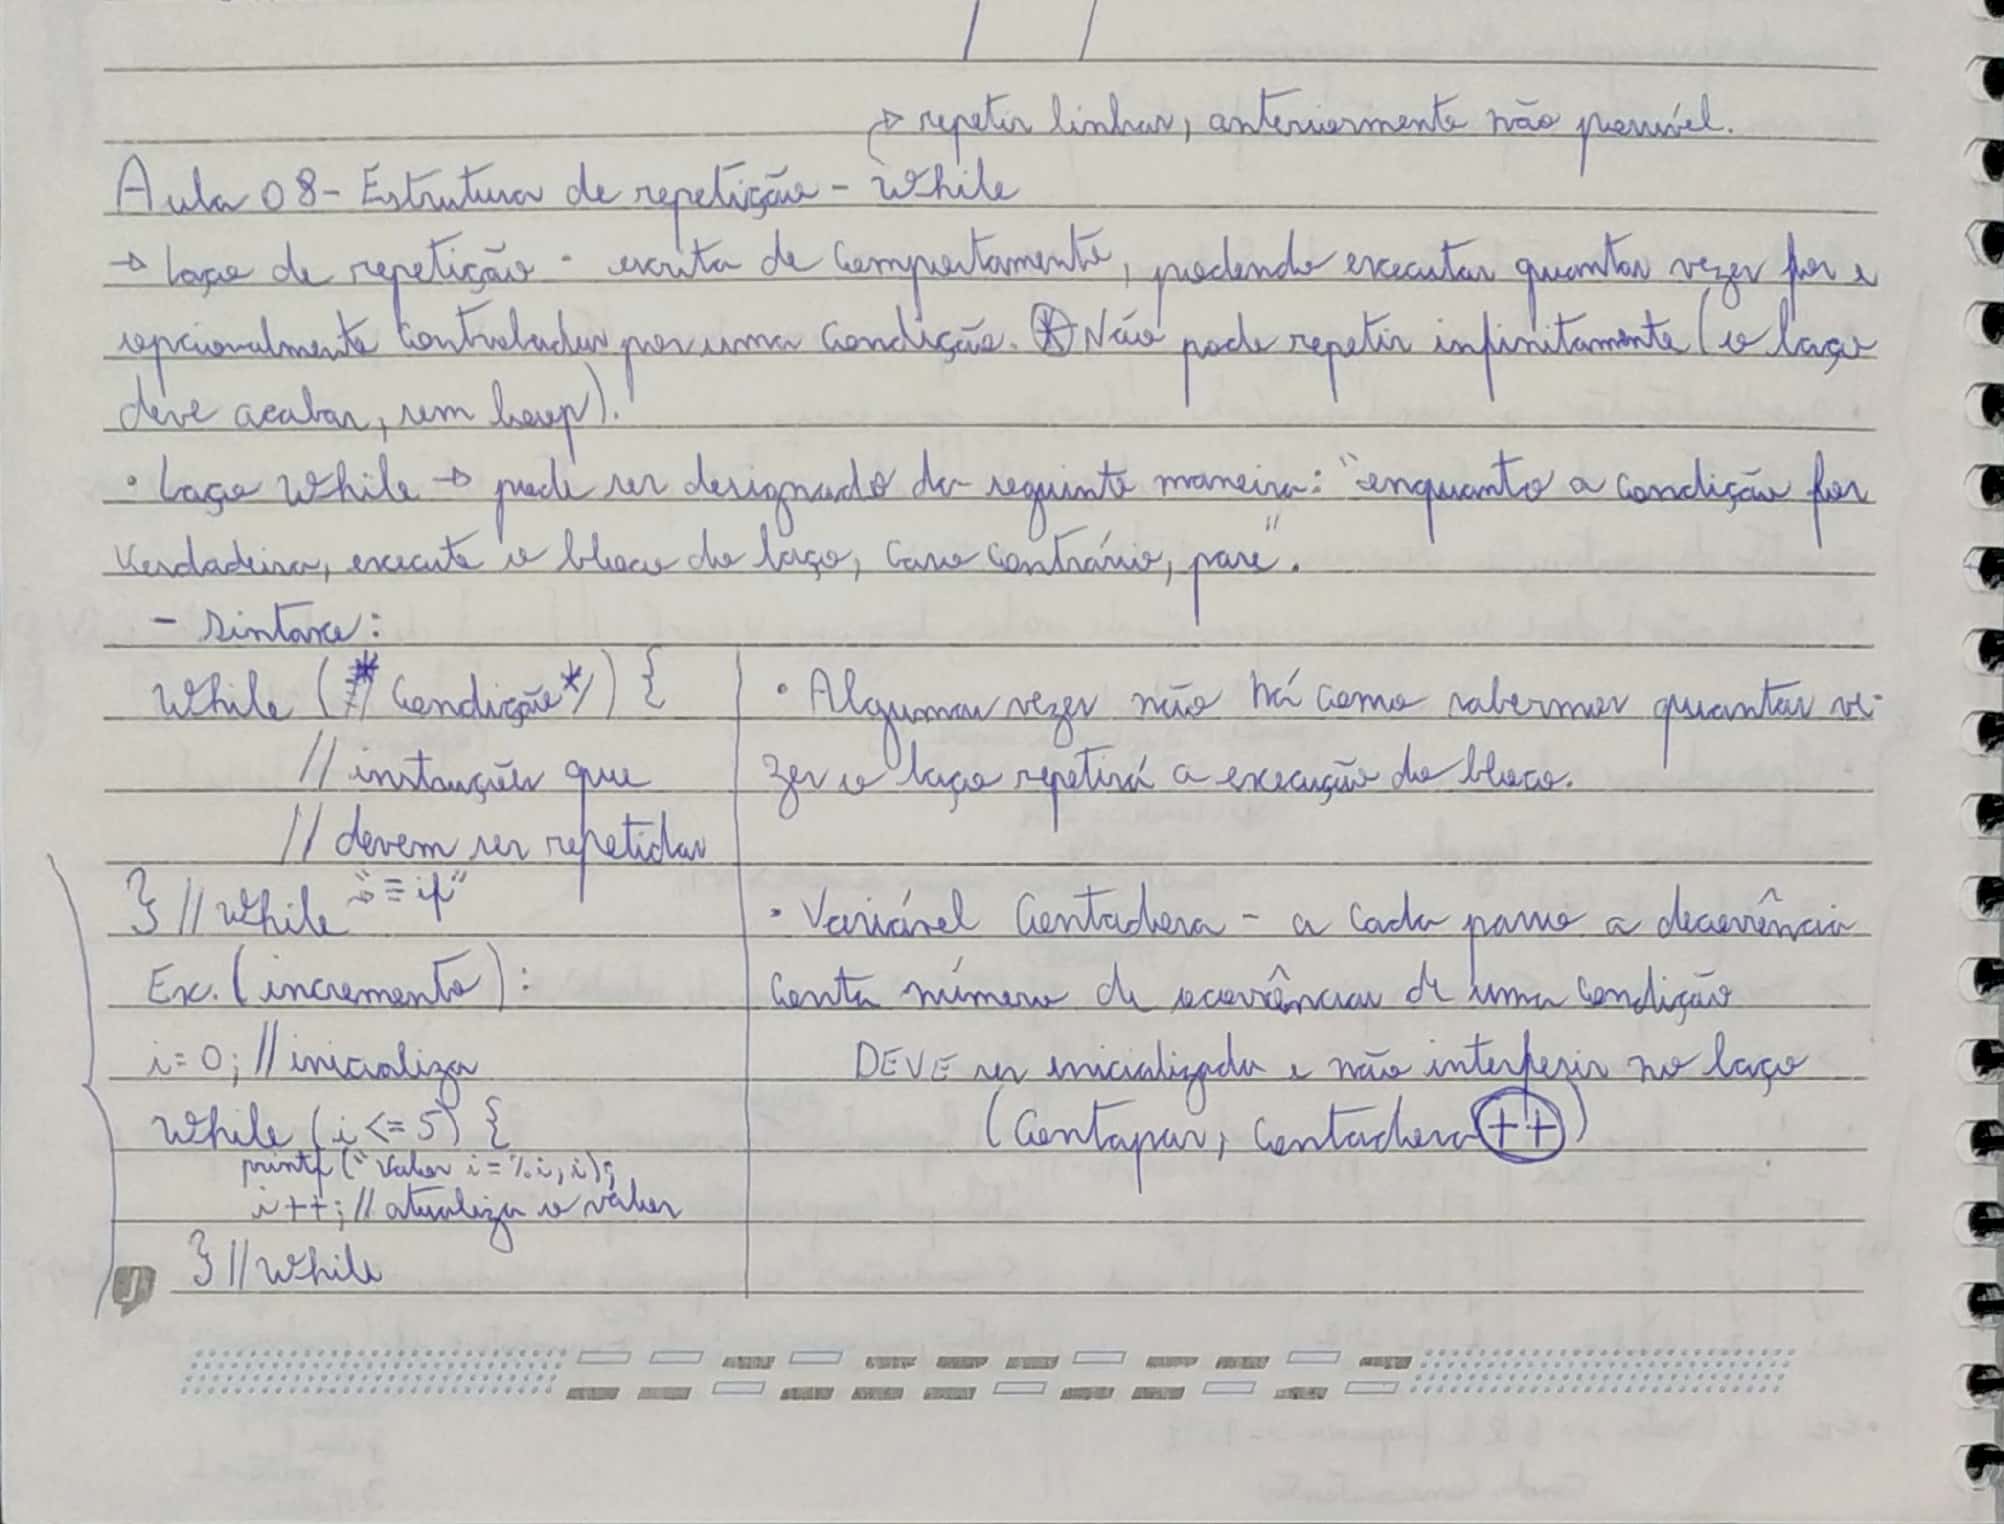 → repetir linhas, anteriormente não possível.
Aula 08 - Estrutura de repetição - While
→ Laço de repetição - escrita de comportamento, podendo executar quantas vezes for e
opcionalmente controladas por uma condição. * Não pode repetir infinitamente (o laço
deve acabar, sem loop).
• Laço While → pode ser designado da seguinte maneira: "enquanto a condição for
verdadeira, execute o bloco do laço, caso contrário, pare".
- sintaxe:
While (/* Condição */) {
// instruções que
// devem ser repetidas
} // While "→ ≡ if"
Ex. (incremento):
i = 0; // inicializa
While (i <= 5) {
printf ("Valor i = %i, i);
i++; // atualiza o valor
} // While
• Algumas vezes não há como sabermos quantas ve-
zes o laço repetirá a execução do bloco.
• Variável Contadora - a cada passo a decorrência
conta número de ocorrências de uma condição
DEVE ser inicializada e não interferir no laço
(Contapar, contadora ++)